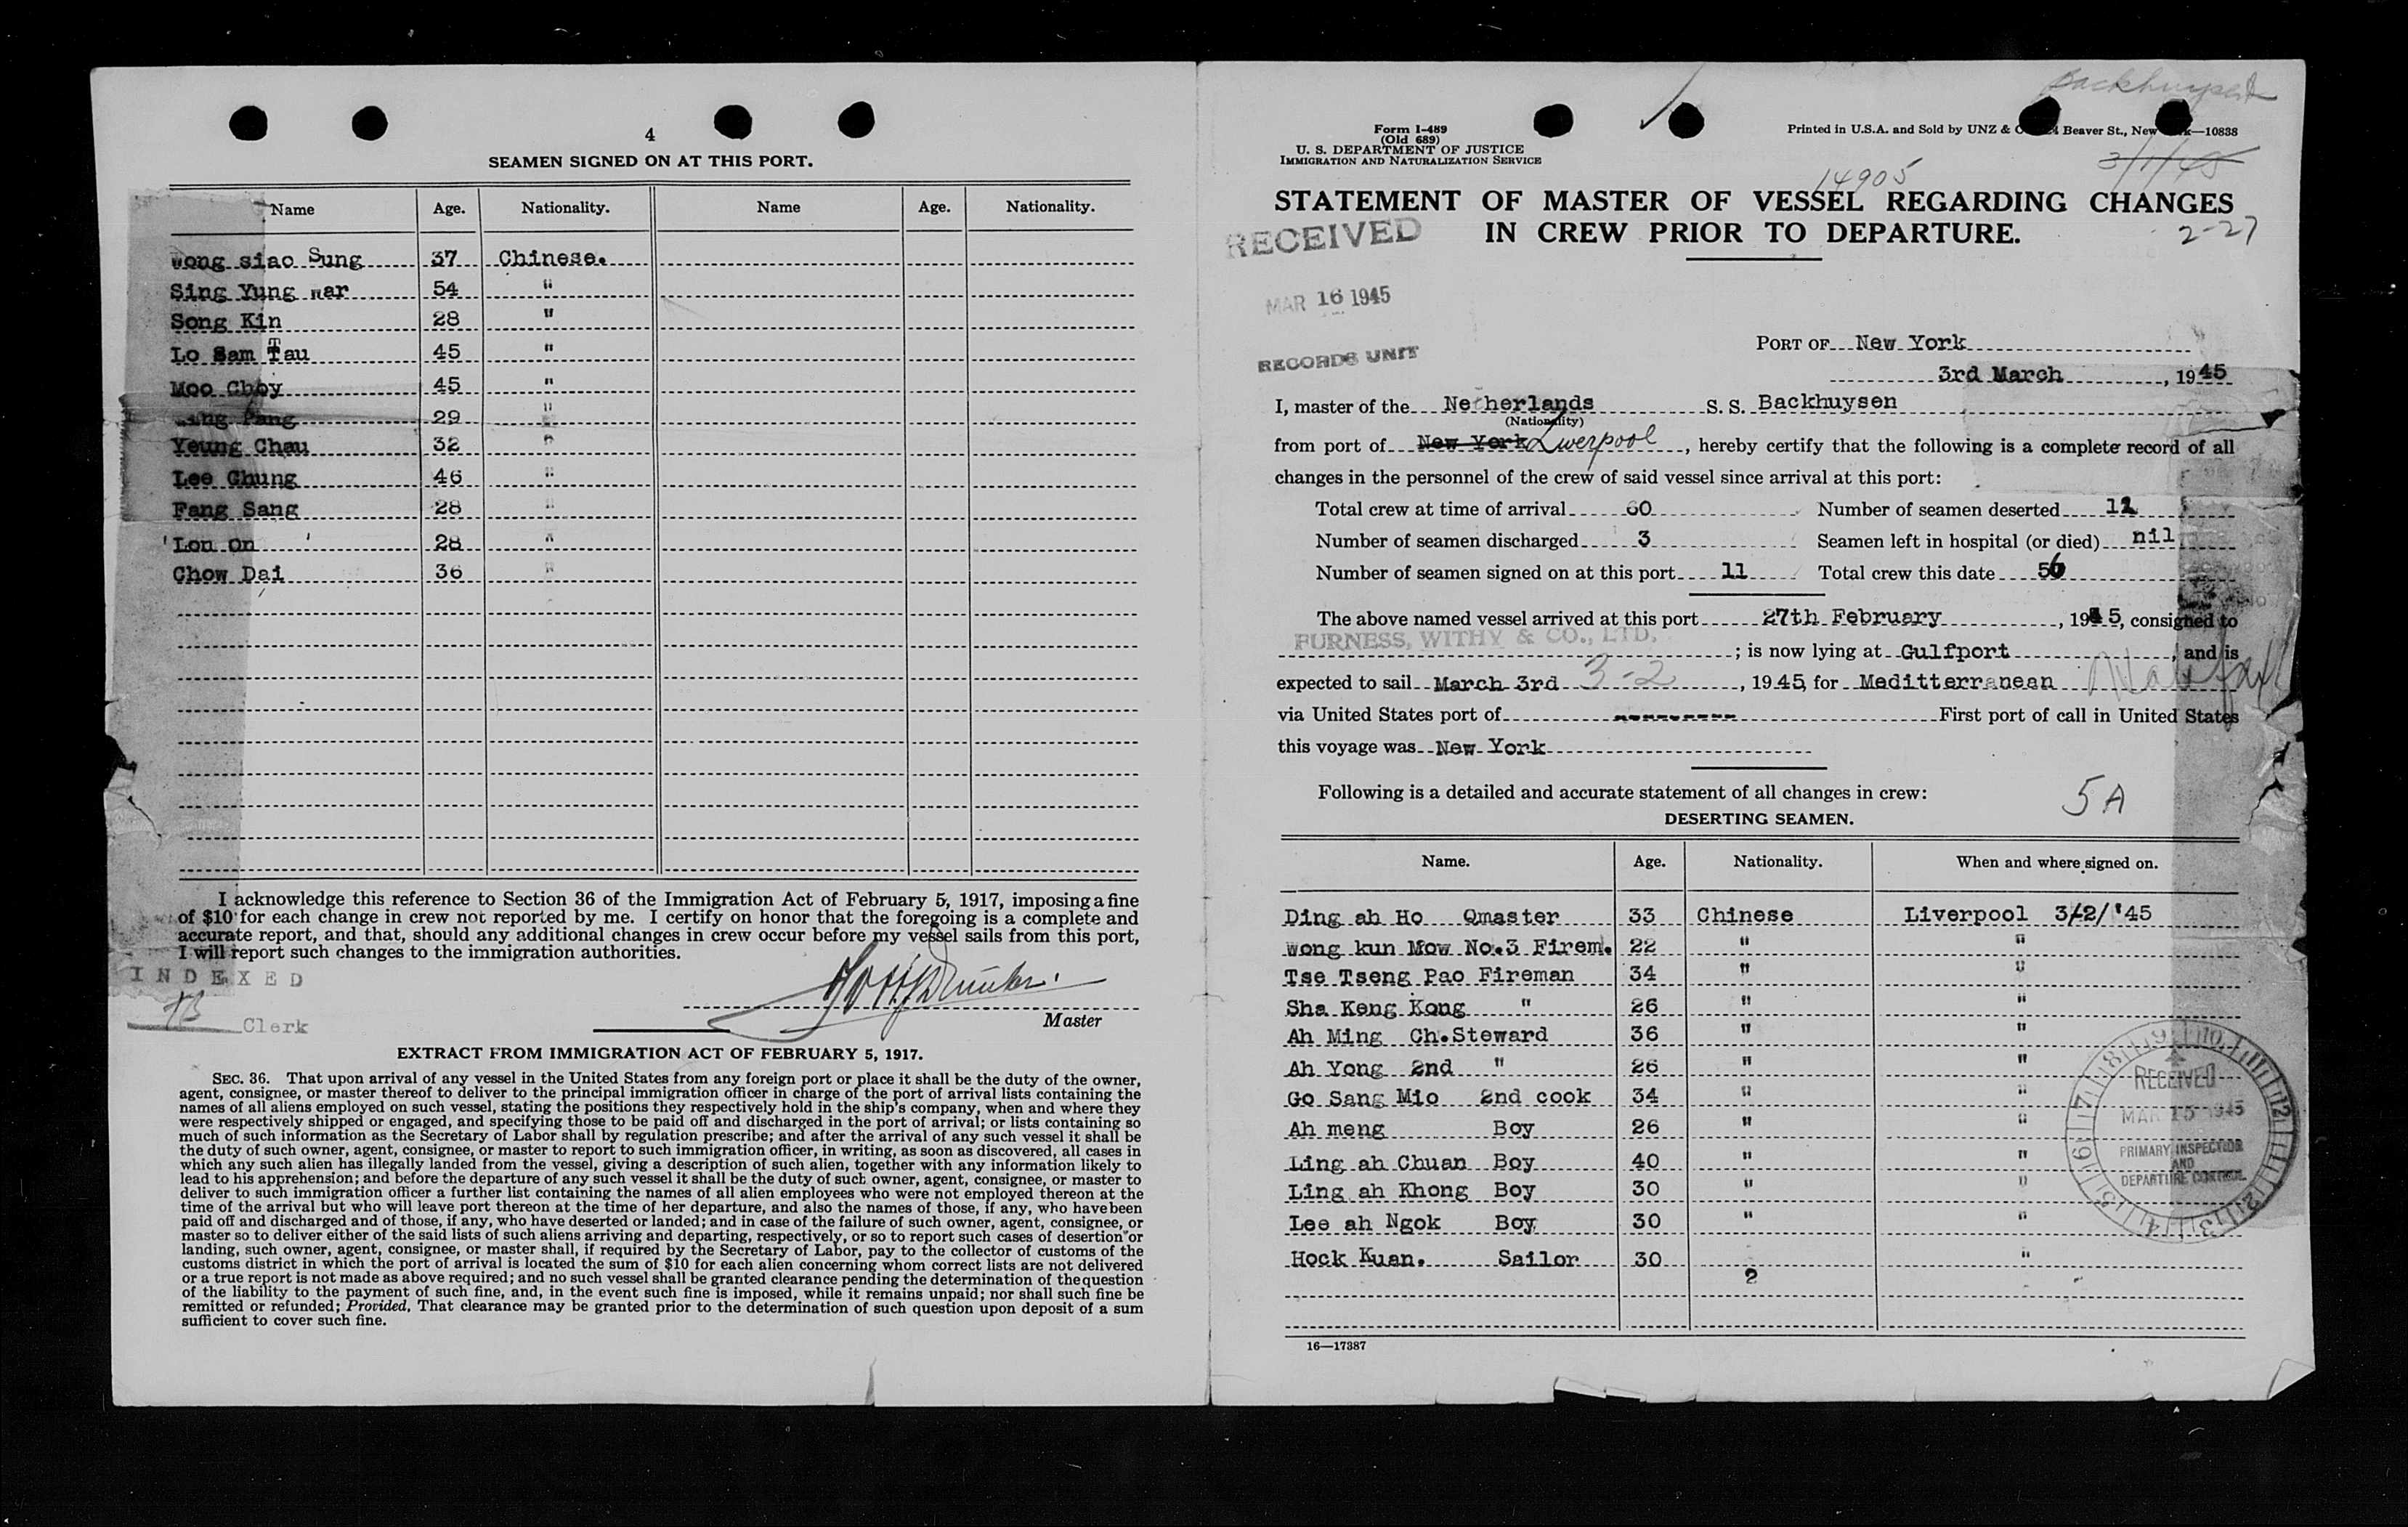 4
SEAMEN SIGNED ON AT THIS PORT.
Name Age. Nationality. Name Age. Nationality.
Wong siao Sung 37 Chinese.
Sing Yung War 54 "
Song Kin 28 "
Lo Sam Tau 45 "
Moo Choy 45 "
29 "
Yeung Chau 32 "
Lee Chung 46 "
Fang Sang 28 "
'Lon on ' 28 "
Chow Dai 36 "
I acknowledge this reference to Section 36 of the Immigration Act of February 5, 1917, imposing a fine
of $10 for each change in crew not reported by me. I certify on honor that the foregoing is a complete and
accurate report, and that, should any additional changes in crew occur before my vessel sails from this port,
I will report such changes to the immigration authorities.
INDEXED
Clerk
Master
EXTRACT FROM IMMIGRATION ACT OF FEBRUARY 5, 1917.
SEC. 36. That upon arrival of any vessel in the United States from any foreign port or place it shall be the duty of the owner,
agent, consignee, or master thereof to deliver to the principal immigration officer in charge of the port of arrival lists containing the
names of all aliens employed on such vessel, stating the positions they respectively hold in the ship's company, when and where they
were respectively shipped or engaged, and specifying those to be paid off and discharged in the port of arrival; or lists containing so
much of such information as the Secretary of Labor shall by regulation prescribe; and after the arrival of any such vessel it shall be
the duty of such owner, agent, consignee, or master to report to such immigration officer, in writing, as soon as discovered, all cases in
which any such alien has illegally landed from the vessel, giving a description of such alien, together with any information likely to
lead to his apprehension; and before the departure of any such vessel it shall be the duty of such owner, agent, consignee, or master to
deliver to such immigration officer a further list containing the names of all alien employees who were not employed thereon at the
time of the arrival but who will leave port thereon at the time of her departure, and also the names of those, if any, who have been
paid off and discharged and of those, if any, who have deserted or landed; and in case of the failure of such owner, agent, consignee, or
master so to deliver either of the said lists of such aliens arriving and departing, respectively, or so to report such cases of desertion or
landing, such owner, agent, consignee, or master shall, if required by the Secretary of Labor, pay to the collector of customs of the
customs district in which the port of arrival is located the sum of $10 for each alien concerning whom correct lists are not delivered
or a true report is not made as above required; and no such vessel shall be granted clearance pending the determination of the question
of the liability to the payment of such fine, and, in the event such fine is imposed, while it remains unpaid; nor shall such fine be
remitted or refunded; Provided, That clearance may be granted prior to the determination of such question upon deposit of a sum
sufficient to cover such fine.
Form I-489
(Old 689)
U. S. DEPARTMENT OF JUSTICE
IMMIGRATION AND NATURALIZATION SERVICE
Printed in U.S.A. and Sold by UNZ & Beaver St., New —10838
3/1/45
14905
STATEMENT OF MASTER OF VESSEL REGARDING CHANGES
IN CREW PRIOR TO DEPARTURE.
2-27
RECEIVED
MAR 16 1945
RECORDS UNIT
PORT OF New York
3rd March, 1945
I, master of the Netherlands S. S. Backhuysen
(Nationality)
from port of New York Liverpool, hereby certify that the following is a complete record of all
changes in the personnel of the crew of said vessel since arrival at this port:
Total crew at time of arrival 60 Number of seamen deserted 12
Number of seamen discharged 3 Seamen left in hospital (or died) nil
Number of seamen signed on at this port 11 Total crew this date 56
The above named vessel arrived at this port 27th February, 1945, consigned to
FURNESS, WITHY & CO., LTD. ; is now lying at Gulfport, and is
expected to sail March 3rd 3-2, 1945, for Meditterranean
via United States port of --------- First port of call in United States
this voyage was New York
Following is a detailed and accurate statement of all changes in crew:
5A
DESERTING SEAMEN.
Name. Age. Nationality. When and where signed on.
Ding ah Ho Qmaster 33 Chinese Liverpool 3/2/'45
Wong kun Mow No.3 Firem. 22 " "
Tse Tseng Pao Fireman 34 " "
Sha Keng Kong " 26 " "
Ah Ming Ch.Steward 36 " "
Ah Yong 2nd " 26 " "
Go Sang Mio 2nd cook 34 " "
Ah meng Boy 26 " "
Ling ah Chuan Boy 40 " "
Ling ah Khong Boy 30 " "
Lee ah Ngok Boy 30 " "
Hock Kuan. Sailor 30 "
2
RECEIVED
MAR 15 1945
PRIMARY INSPECTION
AND
DEPARTURE CONTROL
16—17387